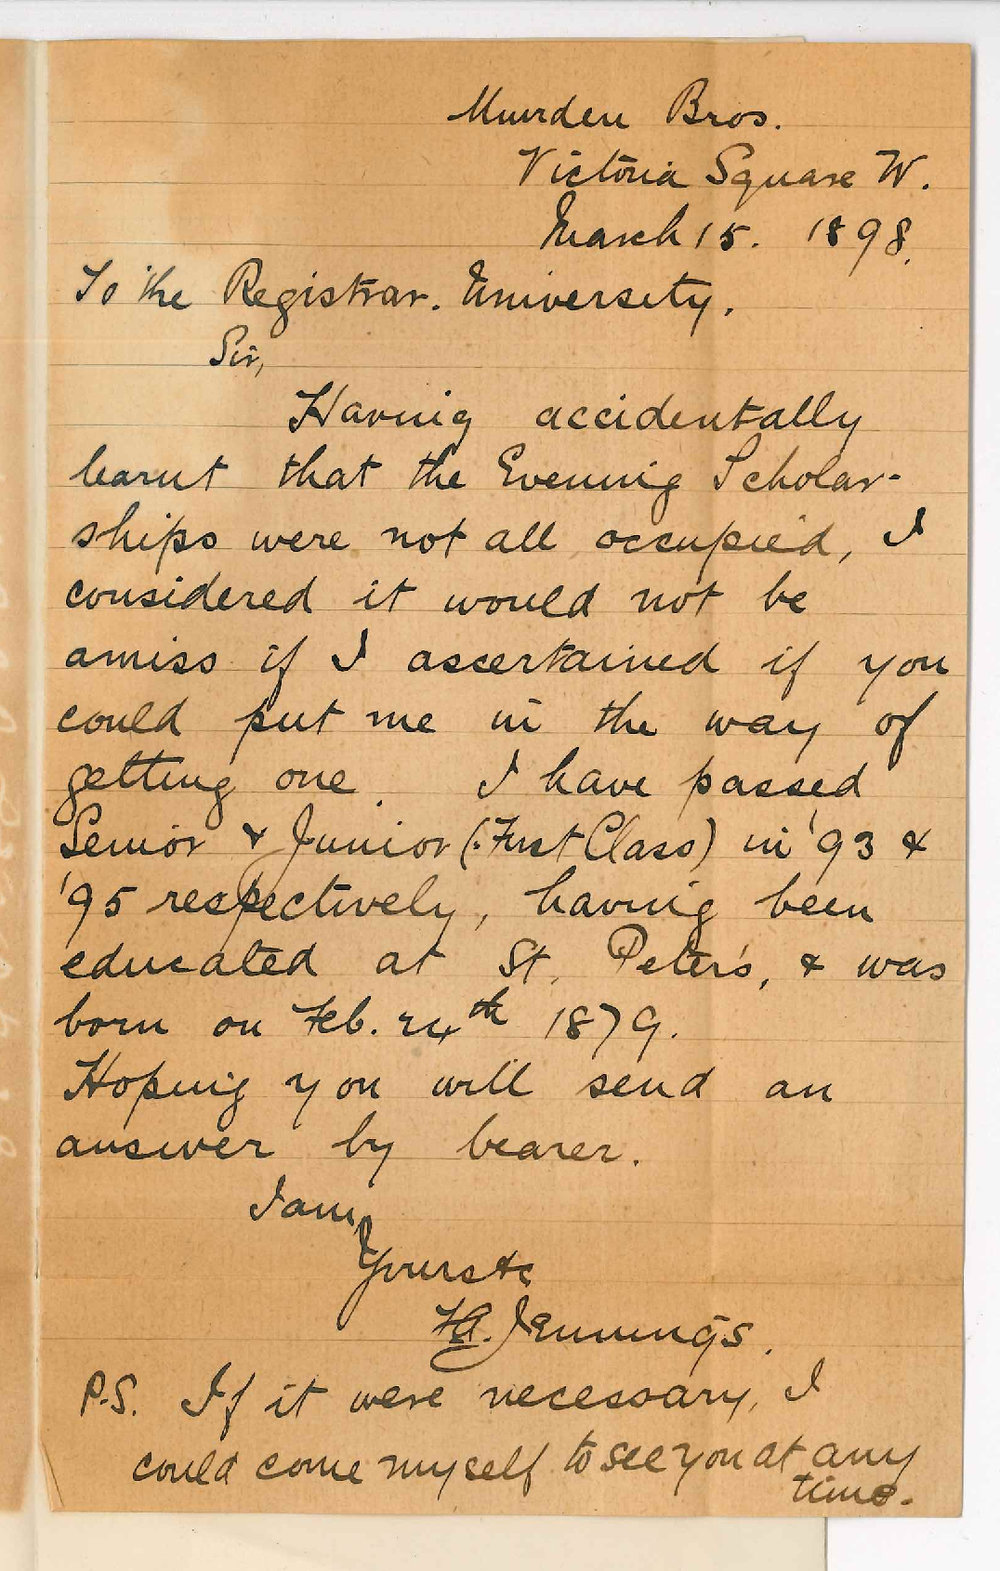 Muirden Bros.
Victoria Square W.
March 15. 1898.
To the Registrar. University.
Sir,
Having accidentally
learnt that the Evening Scholar-
ships were not all occupied, I
considered it would not be
amiss if I ascertained if you
could put me in the way of
getting one. I have passed
Senior & Junior (First Class) in '93 &
'95 respectively, having been
educated at St. Peter's, & was
born on Feb. 24th 1879.
Hoping you will send an
answer by bearer.
I am,
Yours &c
H.A. Jennings.
P.S. If it were necessary, I
could come myself to see you at any
time.